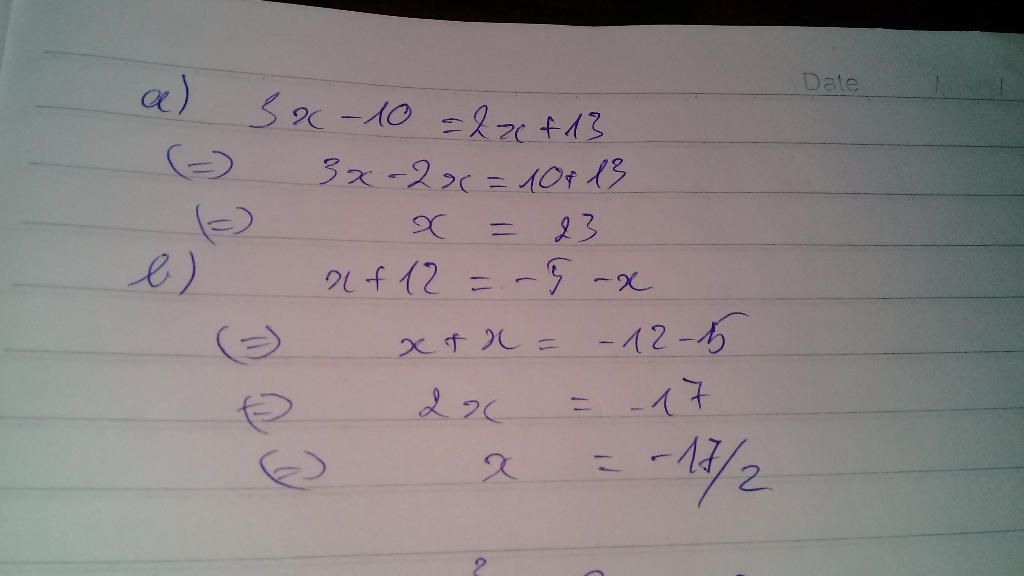 Date / /
a) 3x - 10 = 2x + 13
(=) 3x - 2x = 10 + 13
(=) x = 23
b) x + 12 = -5 - x
(=) x + x = -12 - 5
(=) 2x = -17
(=) x = -17/2